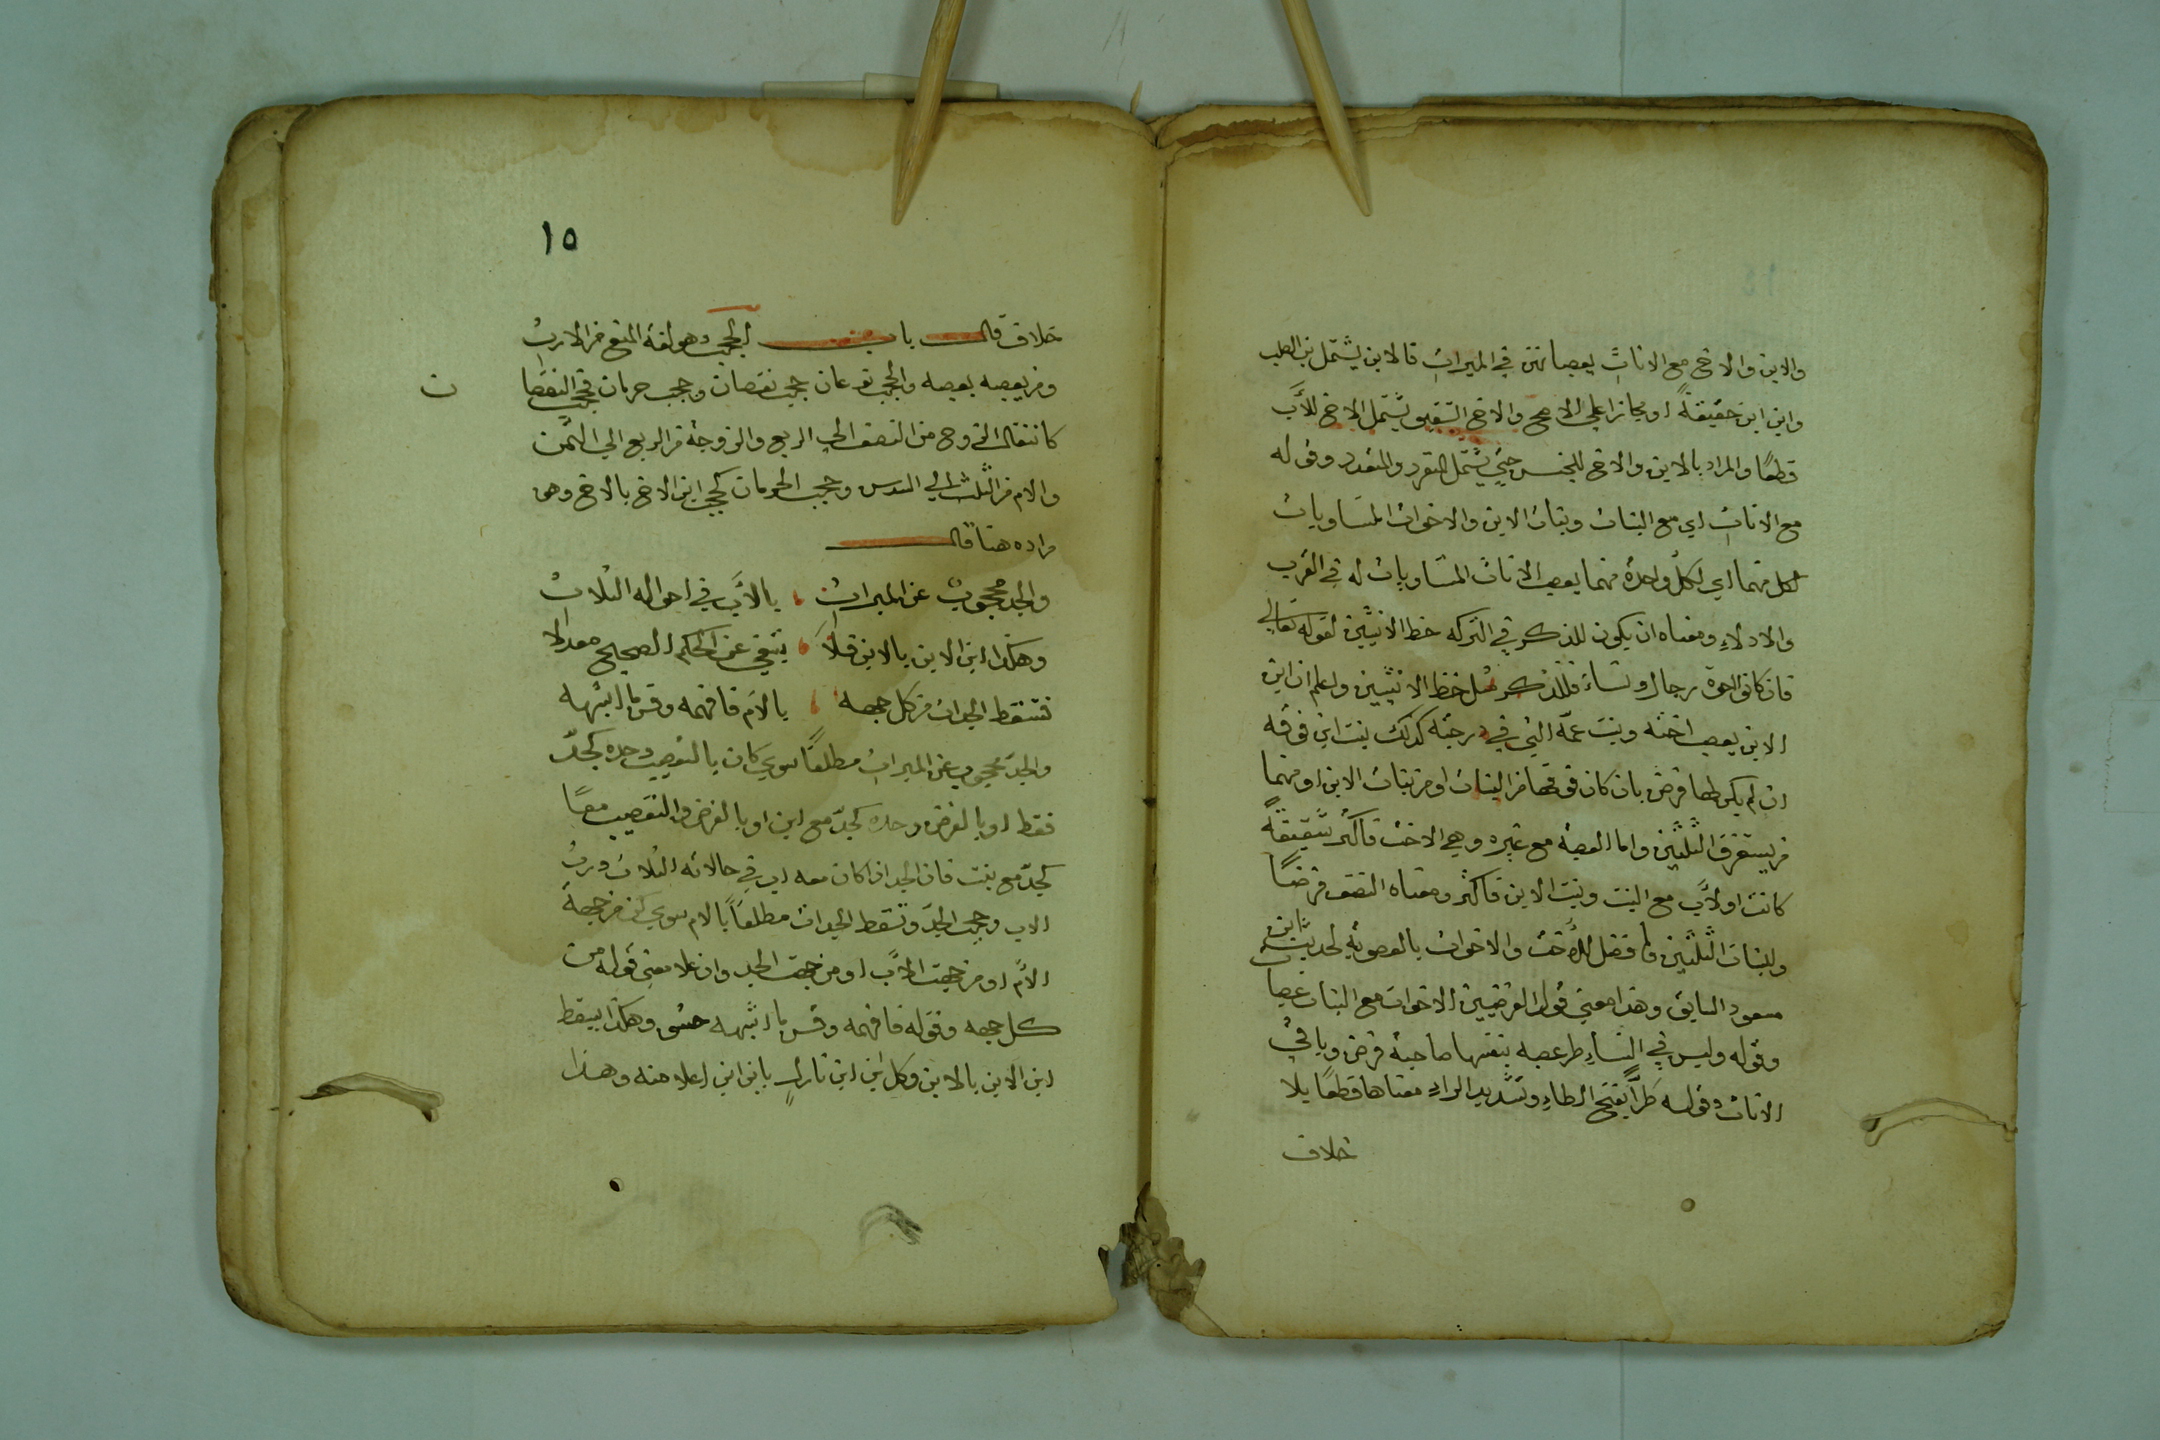 والابن والاخ مع الاناث يعصبانهن في الميراث فالابن يشتمل بن الصلب
وابن ابن حقيقة او مجازا علي الاصح والاخ الشقيق يشتمل الاخ للأب
قطعًا والمراد بالابن والاخ للجنس حتي يشتمل المنفرد والمتعدد وقوله
مع الاناث اي مع البنات وبنات الابن والاخوات المتساويات
لكل منهما اي لكل واحدة منهما يعصب الاناث المتساويات له في القرب
والادلاء ومعناه ان يكون للذكر في التركه حظ الانثيين لقوله تعالي
فان كانوا اخوة رجالا ونساء فللذكر مثل حظ الانثيين واعلم ان ابن
الابن يعصب اخته وبنت عمه التي في درجته كذلك بنت ابن فوقه
ان لم يكن لها فرض بان كان فوقها من البنات او من بنات الابن او منهما
من يستغرق الثلثين واما العصبة مع غيره وهي الاخت فاكثر شقيقة
كانت او لأب مع البنت وبنت الابن فاكثر ومعناه النصف فرضًا
ولبنات الثلثين وما فضل للأخت والاخوات بالعصوبة لحديث ابن
مسعود السابق وهذا معني قول الفرضيين الاخوات مع البنات عصبات
وقوله وليس في النساء طرا عصبه بنفسها صاحبة فرض وباقي
الاناث وقوله طرًّا بفتح الطاء وتشديد الراء معناها قطعًا بلا
خلاف
١٥
خلاف قال باب الحجب وهو لغة المنع من الارث
ومن يعصبه بعصبه والحجب نوعان حجب نقصان وحجب حرمان فحجب النقصا
ن
كانتقال الزوج من النصف الي الربع والزوجة من الربع الي الثمن
والام من الثلث الي السدس وحجب الحرمان كحجب ابن الاخ بالاخ وهو
مراده هنا قال
والجد محجوب عن الميراث بالأب في احواله الثلاث
وهكذا ابن الابن بالابن فلا يبتغي عن الحكم الصحيح معدلا
فتسقط الجدات من كل جهه بالام فافهمه وقس ما اشبهه
والجد محجوب عن الميراث مطلقًا سوي كان بالتعصيب وحده كجدّ
فقط او بالفرض وحده كجدّ مع ابن او بالفرض والتعصيب معًا
كجدّ مع بنت فان الجد اذا كان معه اب في حالاته الثلاث ورث
الاب وحجب الجد وتسقط الجدات مطلقاً بالام سوي كن من جهة
الأم او من جهت الأب او من جهت الجد وان علا معني قوله من
كل جهه وقوله فافهمه وقس ما اشبهه حشو وهكذا يسقط
ابن الابن بالابن وكل ابن ابن نازل بابن ابن اعلا منه وهذا